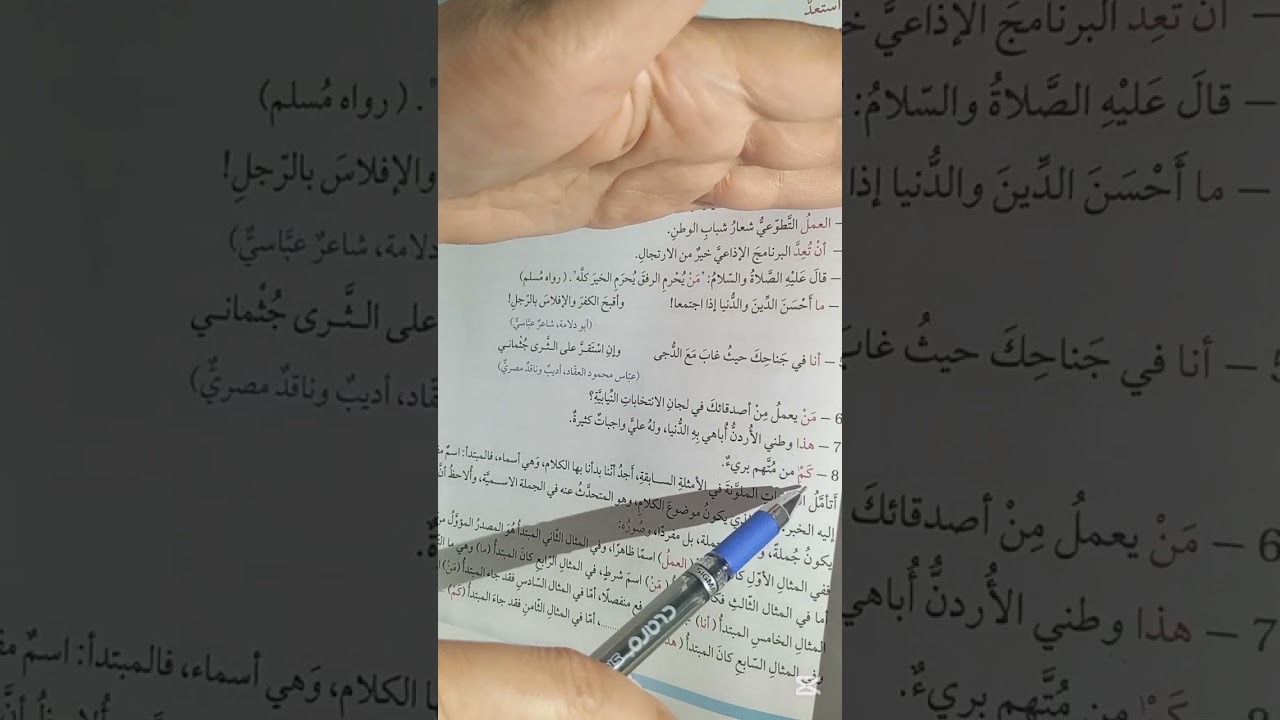 أستعدُّ
العملُ التَّطوّعيُّ شعارُ شبابِ الوطنِ.
– أنْ تُعِدَّ البرنامجَ الإذاعيَّ خيرٌ من الارتجالِ.
– قالَ عَليْهِ الصَّلاةُ والسّلامُ: "مَنْ يُحْرمِ الرفقَ يُحرَمِ الخيرَ كلَّه". ( رواه مُسلم)
– ما أَحْسَنَ الدِّينَ والدُّنيا إذا اجتمعا! وأقبحَ الكفرَ والإفلاسَ بالرّجلِ!
(أبو دلامة، شاعرٌ عبَّاسيٌّ)
5 – أنا في جَناحِكَ حيثُ غابَ مَعَ الدُّجى وإنِ اسْتَقرَّ على الثَّرى جُثْماني
(عبّاس محمود العقّاد، أديبٌ وناقدٌ مصريٌّ)
6 – مَنْ يعملُ مِنْ أصدقائكَ في لجانِ الانتخاباتِ النِّيابيَّةِ؟
7 – هذا وطني الأُردنُّ أُباهي بِهِ الدُّنيا، ولهُ عليَّ واجباتٌ كثيرةٌ.
8 – كَمْ من مُتَّهم بريءٌ.
أتأمَّلُ الملوَّنةَ في الأمثلةِ السابقةِ، أجدُ أنّنا بدأنا بها الكلام، وَهي أسماء، فالمبتدأ: اسمٌ
إليه الخبر يكونُ موضوعَ الكلامِ، وهو المتحدَّثُ عنه في الجملة الاسميَّة، وأُلاحظُ أنَّ
يكونُ جُملةً، جملة، بل مفردًا، وصُورُه:
ففي المثالِ الأوّلِ كانَ العملُ) اسمًا ظاهرًا، وفي المثالِ الثّاني المبتدأُ هُوَ المصدرُ المؤوَّلُ من
أما في المثال الثّالثِ (مَنْ) اسمَ شرطٍ، في المثالِ الرّابعِ كانَ المبتدأُ (ما) وهي ما
المثالِ الخامسِ المبتدأُ (أنا) رفع منفصلًا، أمّا في المثالِ السّادسِ فقد جاءَ المبتدأُ (مَنْ)
وفي المثالِ السّابعِ كانَ المبتدأُ (هذ ......، أمّا في المثالِ الثّامنِ فقد جاءَ المبتدأُ (كَمْ) ....